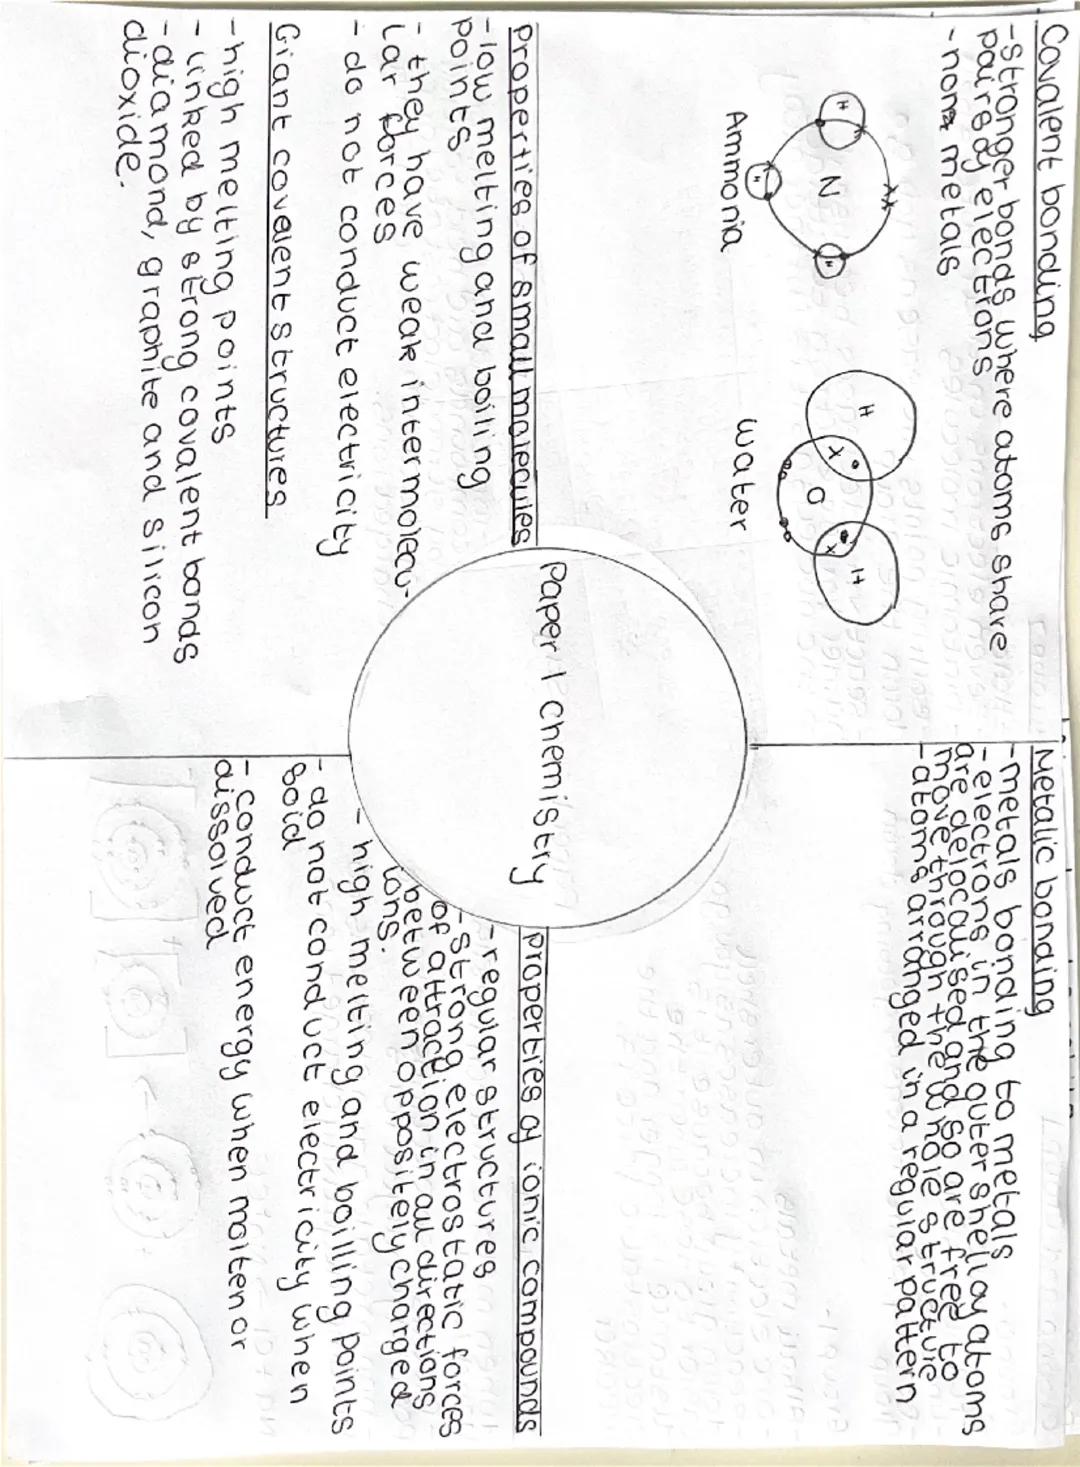 Covalent bonding
-Stronger bonds where atoms share
pairs of electrons
-non metals
H
N
H
H
Ammonia
H
O
H
water
Properties of small molecules
-low melting and boiling
points
- they have weak intermolecu-
lar forces
- do not conduct electricity
Giant covalent structures
-high melting points
- linked by strong covalent bonds
-diamond, graphite and silicon
dioxide.
Paper 1 chemistry
Metalic bonding
-metals bonding to metals
-electrons in the outer shell of atoms
are delocalised and so are free to
move through the whole structure
-atoms arranged in a regular pattern
properties of ionic compounds
-regular structures
-strong electrostatic forces
of attraction in all directions
between oppositely charged
ions.
- high melting and boilling points
- do not conduct electricity when
soid
- conduct energy when molten or
dissolved